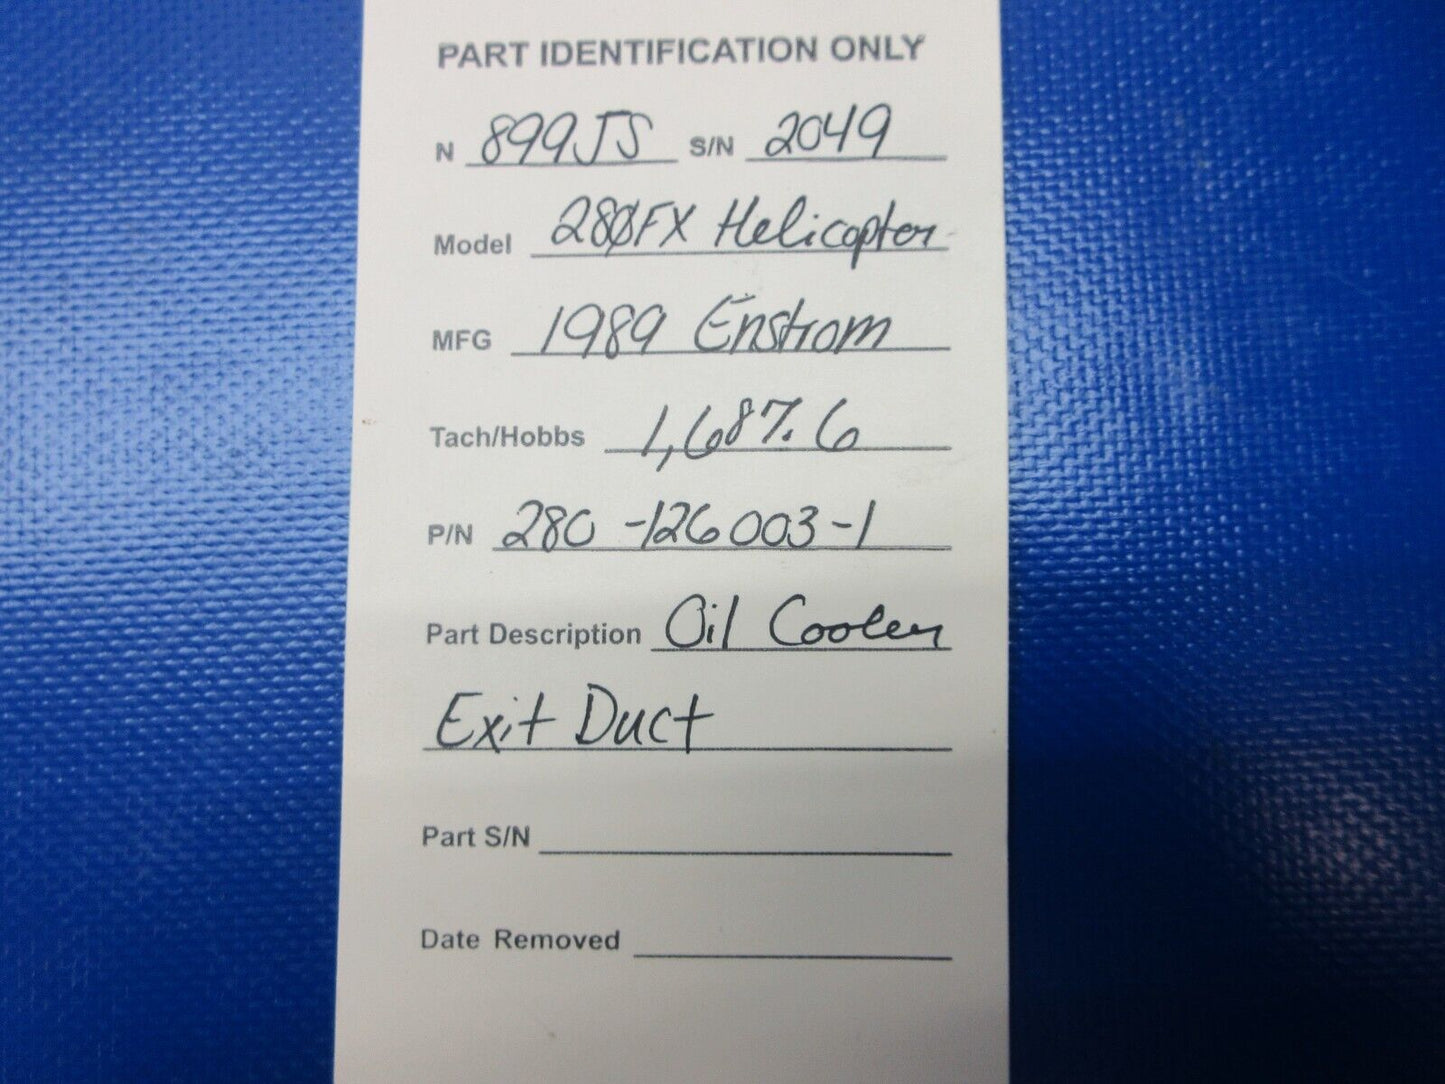 PART IDENTIFICATION ONLY
N 899JS S/N 2049
Model 280FX Helicopter
MFG 1989 Enstrom
Tach/Hobbs 1,687.6
P/N 280-126003-1
Part Description Oil Cooler
Exit Duct
Part S/N
Date Removed